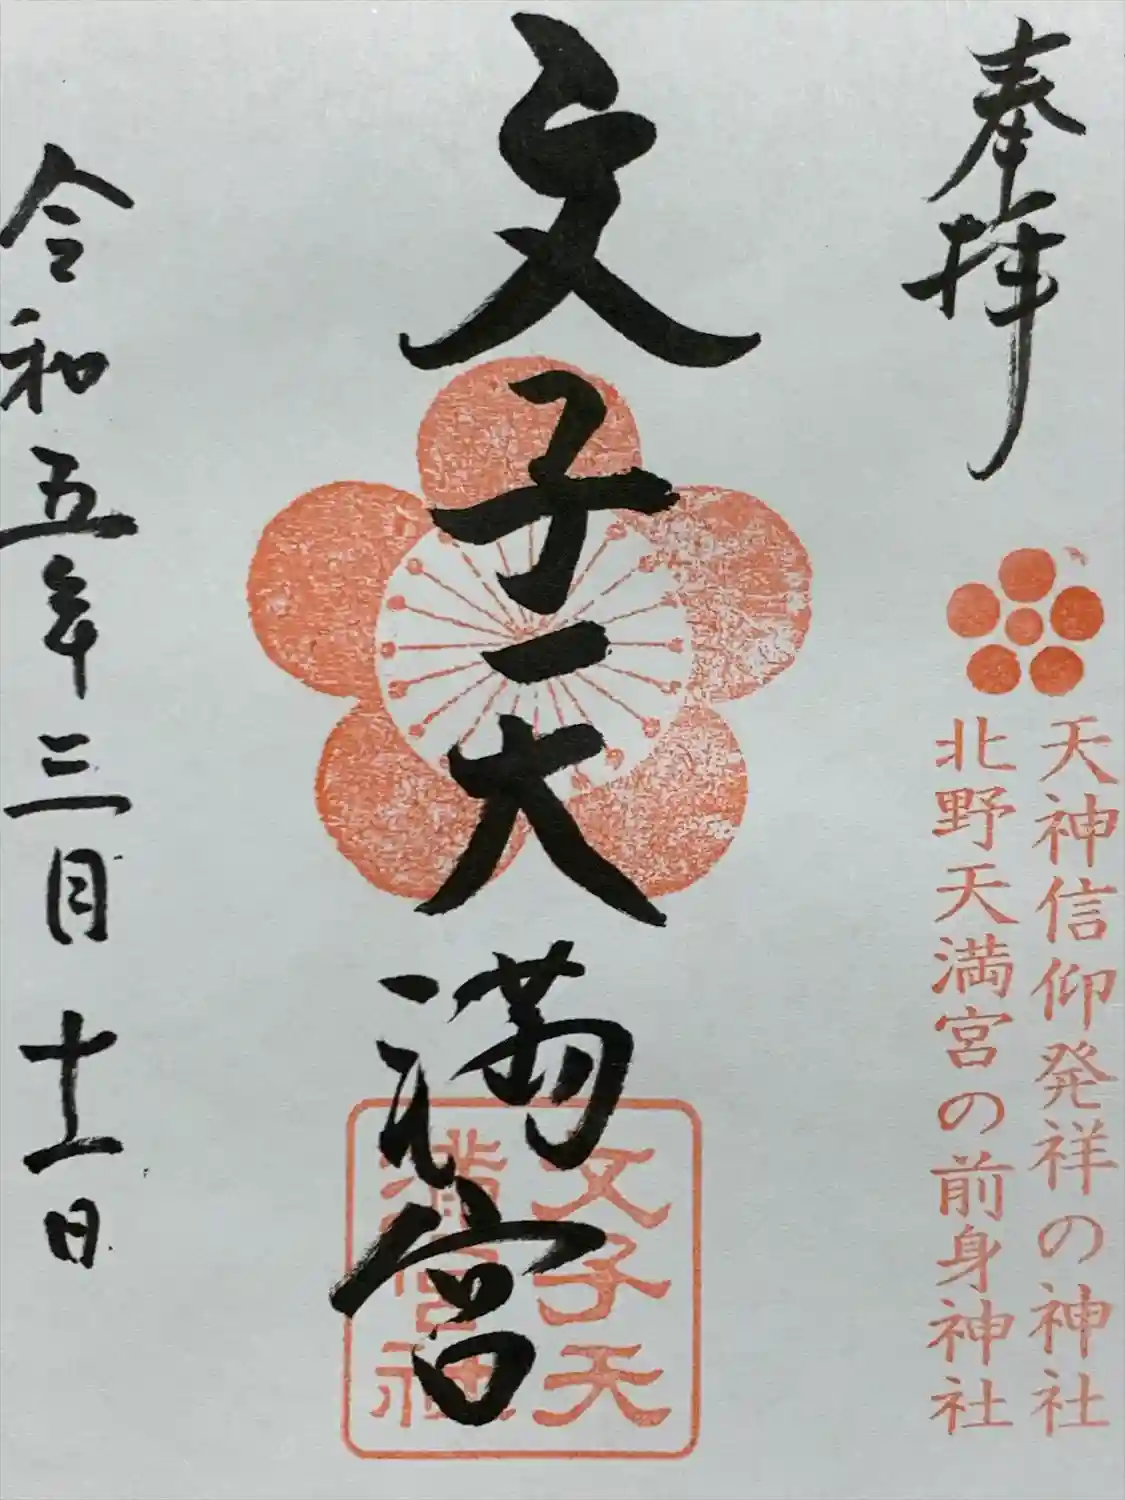 奉拝
天神信仰発祥の神社
北野天満宮の前身神社
文子天満宮
文子天
満宮神
令和五年三月十一日